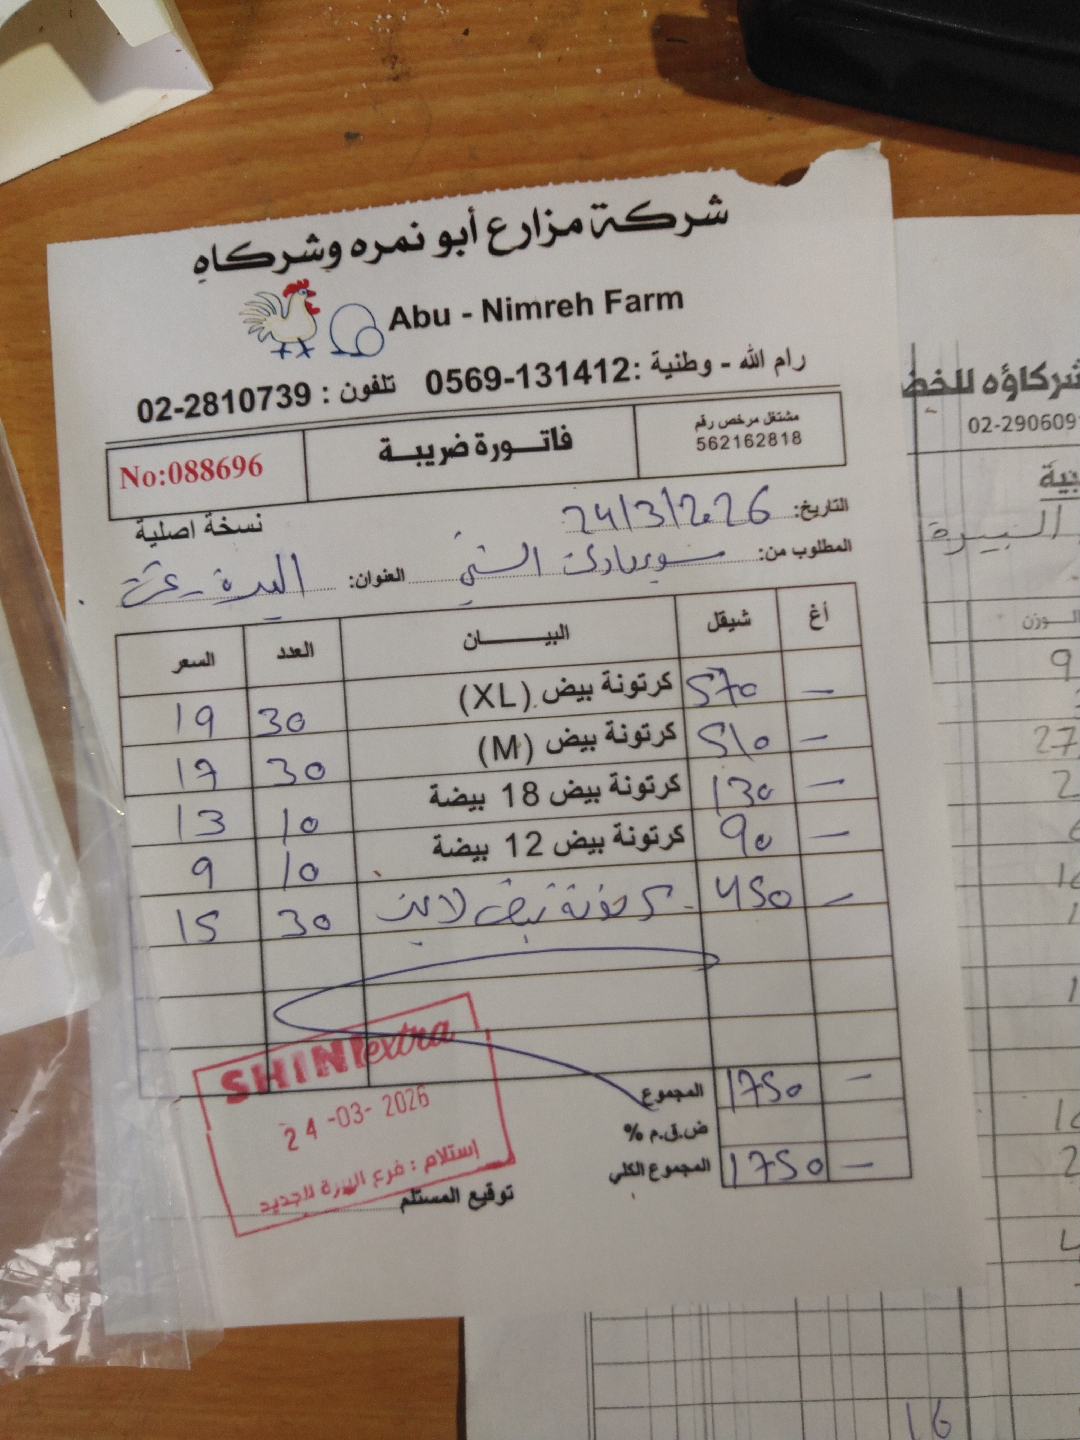 شركة مزارع أبو نمره وشركاه
Abu - Nimreh Farm
رام الله - وطنية : 0569-131412 تلفون : 02-2810739
مشتغل مرخص رقم
562162818
فاتورة ضريبة
No:088696
نسخة اصلية
التاريخ: 24/3/2026
المطلوب من: العنوان:
أغ شيقل البيان العدد السعر
— 570 كرتونة بيض (XL) 30 19
— 510 كرتونة بيض (M) 30 17
— 130 كرتونة بيض 18 بيضة 10 13
— 90 كرتونة بيض 12 بيضة 10 9
— 450 كرتونة بيض 30 15
المجموع 1750 —
ض.ق.م %
المجموع الكلي 1750 —
توقيع المستلم
SHINI extra
24-03-2026
إستلام : فرع البيرة الجديد
شركاؤه للخض
02-290609
بية
البيرة
الوزن
9
27
2
16